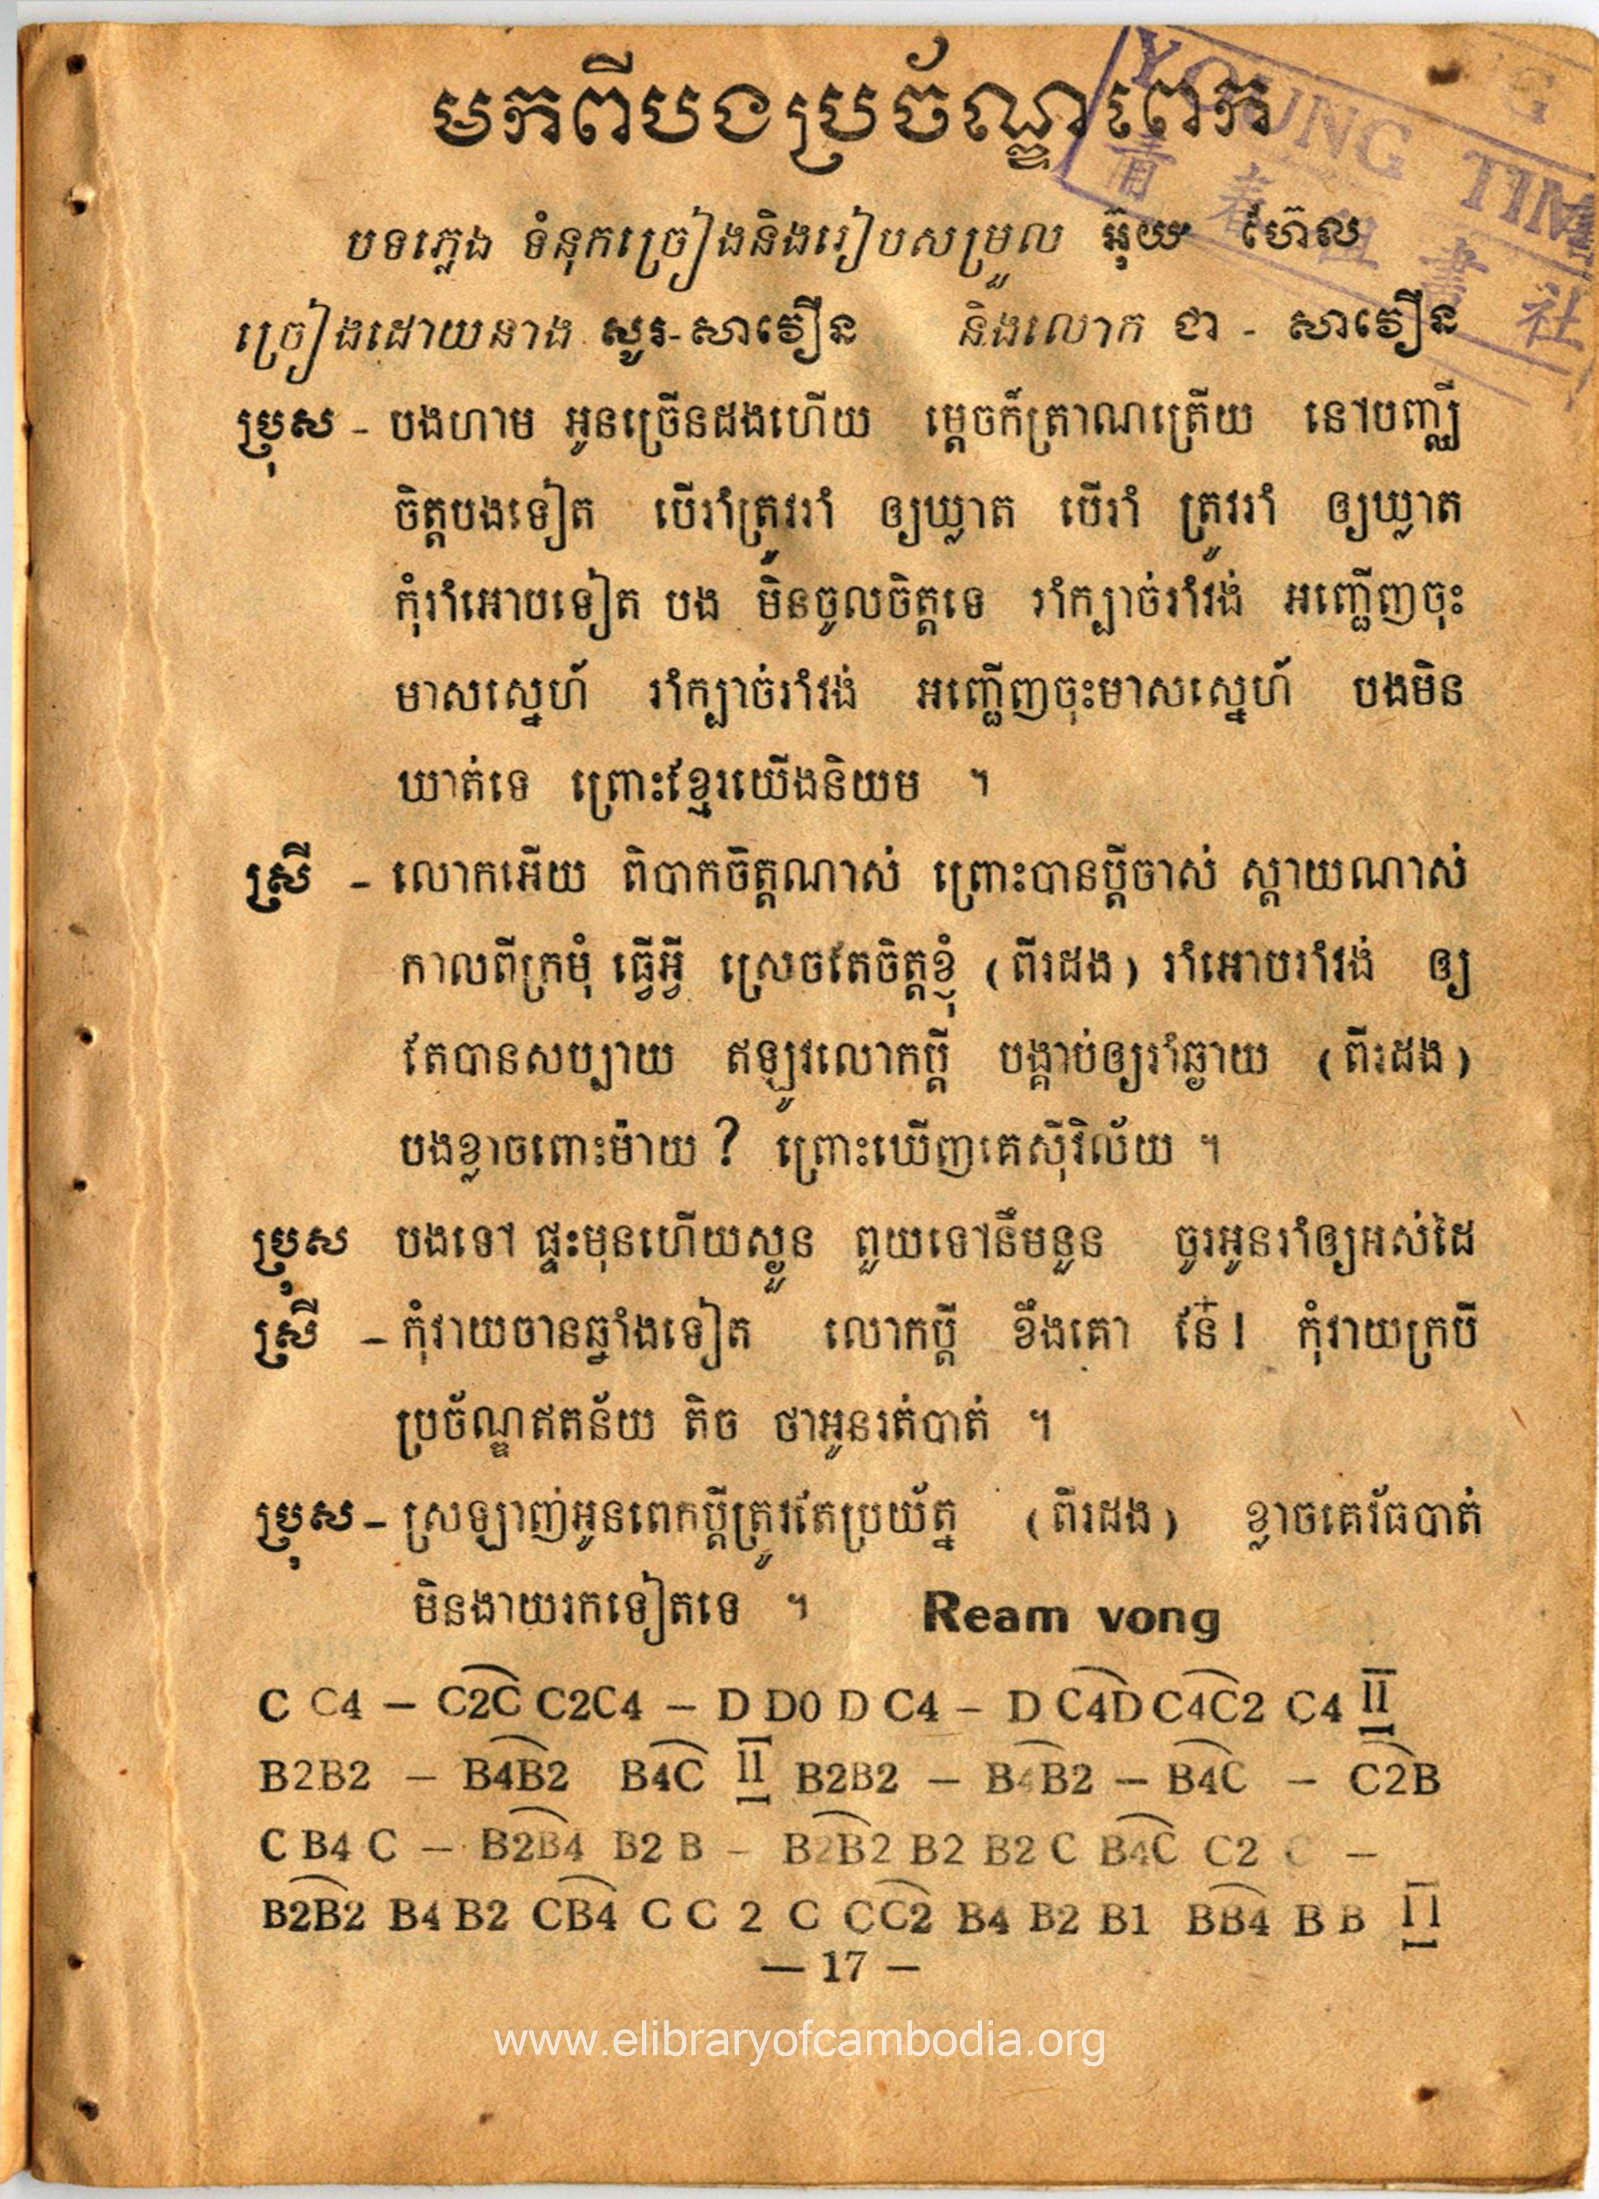 មកពីបងប្រច័ណ្ឌពេក
YOUNG TIM
青春 書社
បទភ្លេង ទំនុកច្រៀងនិងរៀបសម្រួល អ៊ុយ ហ៊ែល
ច្រៀងដោយនាង សូរ-សាវឿន និងលោក ជា - សាវឿន
ប្រុស - បងហាម អូនច្រើនដងហើយ ម្ដេចក៏ត្រាណត្រើយ នៅបញ្ឈឺ
ចិត្តបងទៀត បើរាំត្រូវរាំ ឲ្យឃ្លាត បើរាំ ត្រូវរាំ ឲ្យឃ្លាត
កុំរាំអោបទៀត បង មិនចូលចិត្តទេ រាំក្បាច់រាំវង់ អញ្ជើញចុះ
មាសស្នេហ៍ រាំក្បាច់រាំវង់ អញ្ជើញចុះមាសស្នេហ៍ បងមិន
ឃាត់ទេ ព្រោះខ្មែរយើងនិយម ។
ស្រី - លោកអើយ ពិបាកចិត្តណាស់ ព្រោះបានប្ដីចាស់ ស្ដាយណាស់
កាលពីក្រមុំ ធ្វើអ្វី ស្រេចតែចិត្តខ្ញុំ (ពីរដង) រាំអោបរាំវង់ ឲ្យ
តែបានសប្បាយ ឥឡូវលោកប្ដី បង្គាប់ឲ្យរាំឆ្ងាយ (ពីរដង)
បងខ្លាចពោះម៉ាយ ? ព្រោះឃើញគេស៊ីវិល័យ ។
ប្រុស បងទៅ ផ្ទះមុនហើយស្ងួន ពួយទៅនឹមនួន ចូរអូនរាំឲ្យអស់ដៃ
ស្រី - កុំវាយចានឆ្នាំងទៀត លោកប្ដី ខឹងគោ នែ៎! កុំវាយក្របី
ប្រច័ណ្ឌឥតន័យ តិច ថាអូនរត់បាត់ ។
ប្រុស - ស្រឡាញ់អូនពេកប្ដីត្រូវតែប្រយ័ត្ន (ពីរដង) ខ្លាចគេវធែបាត់
មិនងាយរកទៀតទេ ។ Ream vong
C C4 — C2C C2C4 — D D0 D C4 — D C4D C4C2 C4 II
B2B2 — B4B2 B4C II B2B2 — B4B2 — B4C — C2B
C B4 C — B2B4 B2 B — B2B2 B2 B2 C B4C C2 C —
B2B2 B4 B2 CB4 C C 2 C CC2 B4 B2 B1 BB4 B B II
— 17 —
www.elibraryofcambodia.org